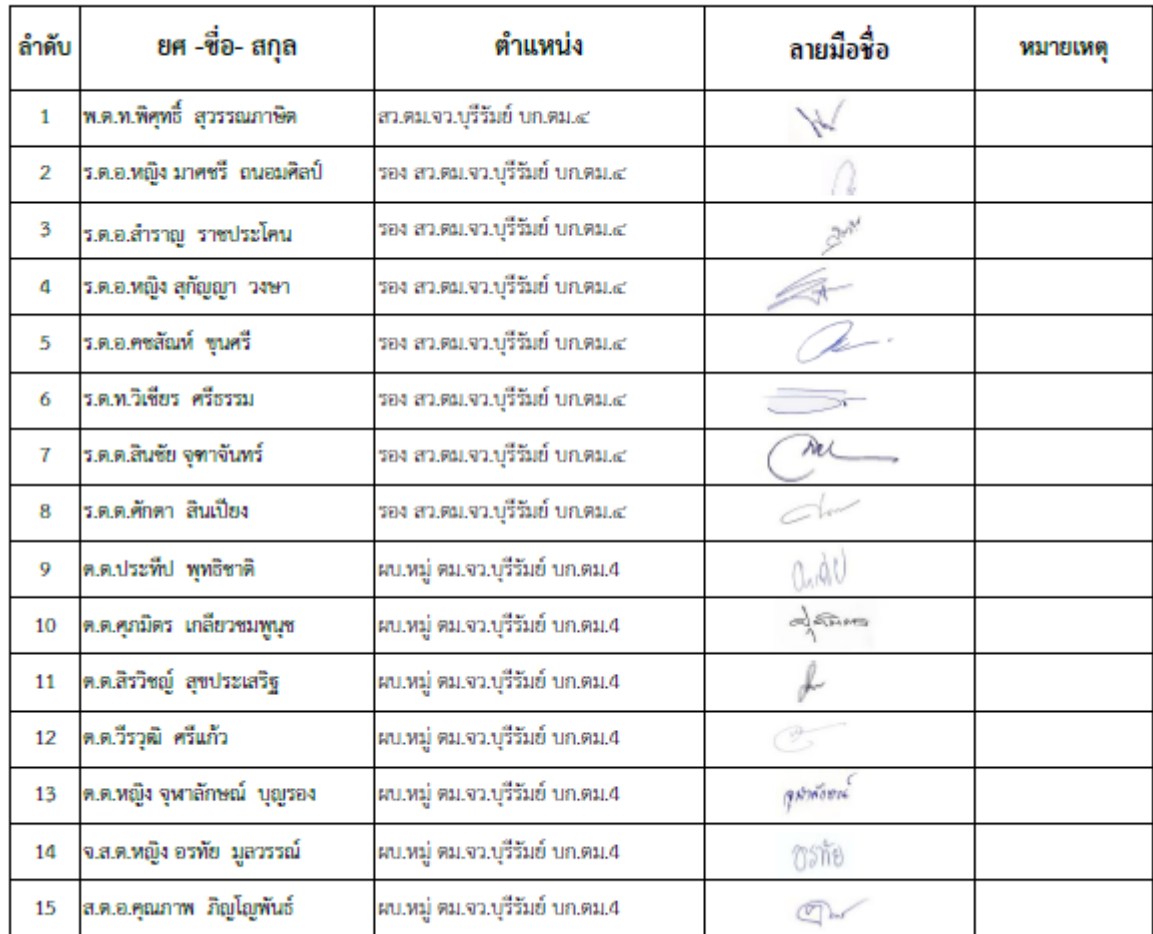 ลำดับ ยศ -ชื่อ- สกุล ตำแหน่ง ลายมือชื่อ หมายเหตุ
1 พ.ต.ท.พิศุทธิ์ สุวรรณภาษิต สว.ตม.จว.บุรีรัมย์ บก.ตม.๔
2 ร.ต.อ.หญิง มาศชรี ถนอมศิลป์ รอง สว.ตม.จว.บุรีรัมย์ บก.ตม.๔
3 ร.ต.อ.สำราญ ราชประโคน รอง สว.ตม.จว.บุรีรัมย์ บก.ตม.๔
4 ร.ต.อ.หญิง สุกัญญา วงษา รอง สว.ตม.จว.บุรีรัมย์ บก.ตม.๔
5 ร.ต.อ.คชสัณห์ ขุนศรี รอง สว.ตม.จว.บุรีรัมย์ บก.ตม.๔
6 ร.ต.ท.วิเชียร ศรีธรรม รอง สว.ตม.จว.บุรีรัมย์ บก.ตม.๔
7 ร.ต.ต.สินชัย จุฑาจันทร์ รอง สว.ตม.จว.บุรีรัมย์ บก.ตม.๔
8 ร.ต.ต.ศักดา สินเปียง รอง สว.ตม.จว.บุรีรัมย์ บก.ตม.๔
9 ด.ต.ประทีป พุทธิชาติ ผบ.หมู่ ตม.จว.บุรีรัมย์ บก.ตม.4
10 ด.ต.ศุภมิตร เกลียวชมพูนุช ผบ.หมู่ ตม.จว.บุรีรัมย์ บก.ตม.4
11 ด.ต.สิรวิชญ์ สุขประเสริฐ ผบ.หมู่ ตม.จว.บุรีรัมย์ บก.ตม.4
12 ด.ต.วีรวุฒิ ศรีแก้ว ผบ.หมู่ ตม.จว.บุรีรัมย์ บก.ตม.4
13 ด.ต.หญิง จุฬาลักษณ์ บุญรอง ผบ.หมู่ ตม.จว.บุรีรัมย์ บก.ตม.4 จุฬาลักษณ์
14 จ.ส.ต.หญิง อรทัย มูลวรรณ์ ผบ.หมู่ ตม.จว.บุรีรัมย์ บก.ตม.4 อรทัย
15 ส.ต.อ.คุณภาพ ภิญโญพันธ์ ผบ.หมู่ ตม.จว.บุรีรัมย์ บก.ตม.4